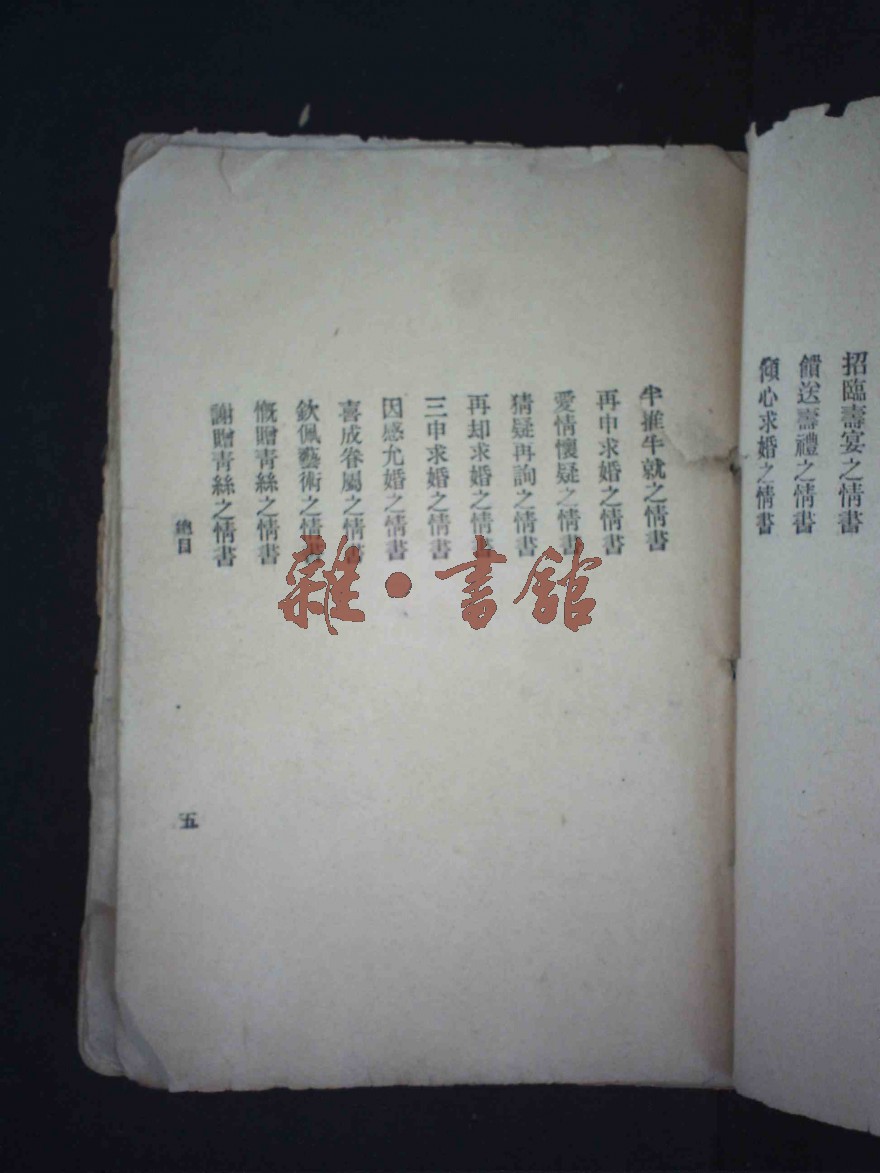 招臨壽宴之情書
饋送壽禮之情書
傾心求婚之情書
半推半就之情書
再申求婚之情書
愛情懷疑之情書
猜疑再詢之情書
再却求婚之情書
三申求婚之情書
因感允婚之情書
喜成眷屬之情書
欽佩藝術之情書
慨贈青絲之情書
謝贈青絲之情書
總目
五
雜·書館